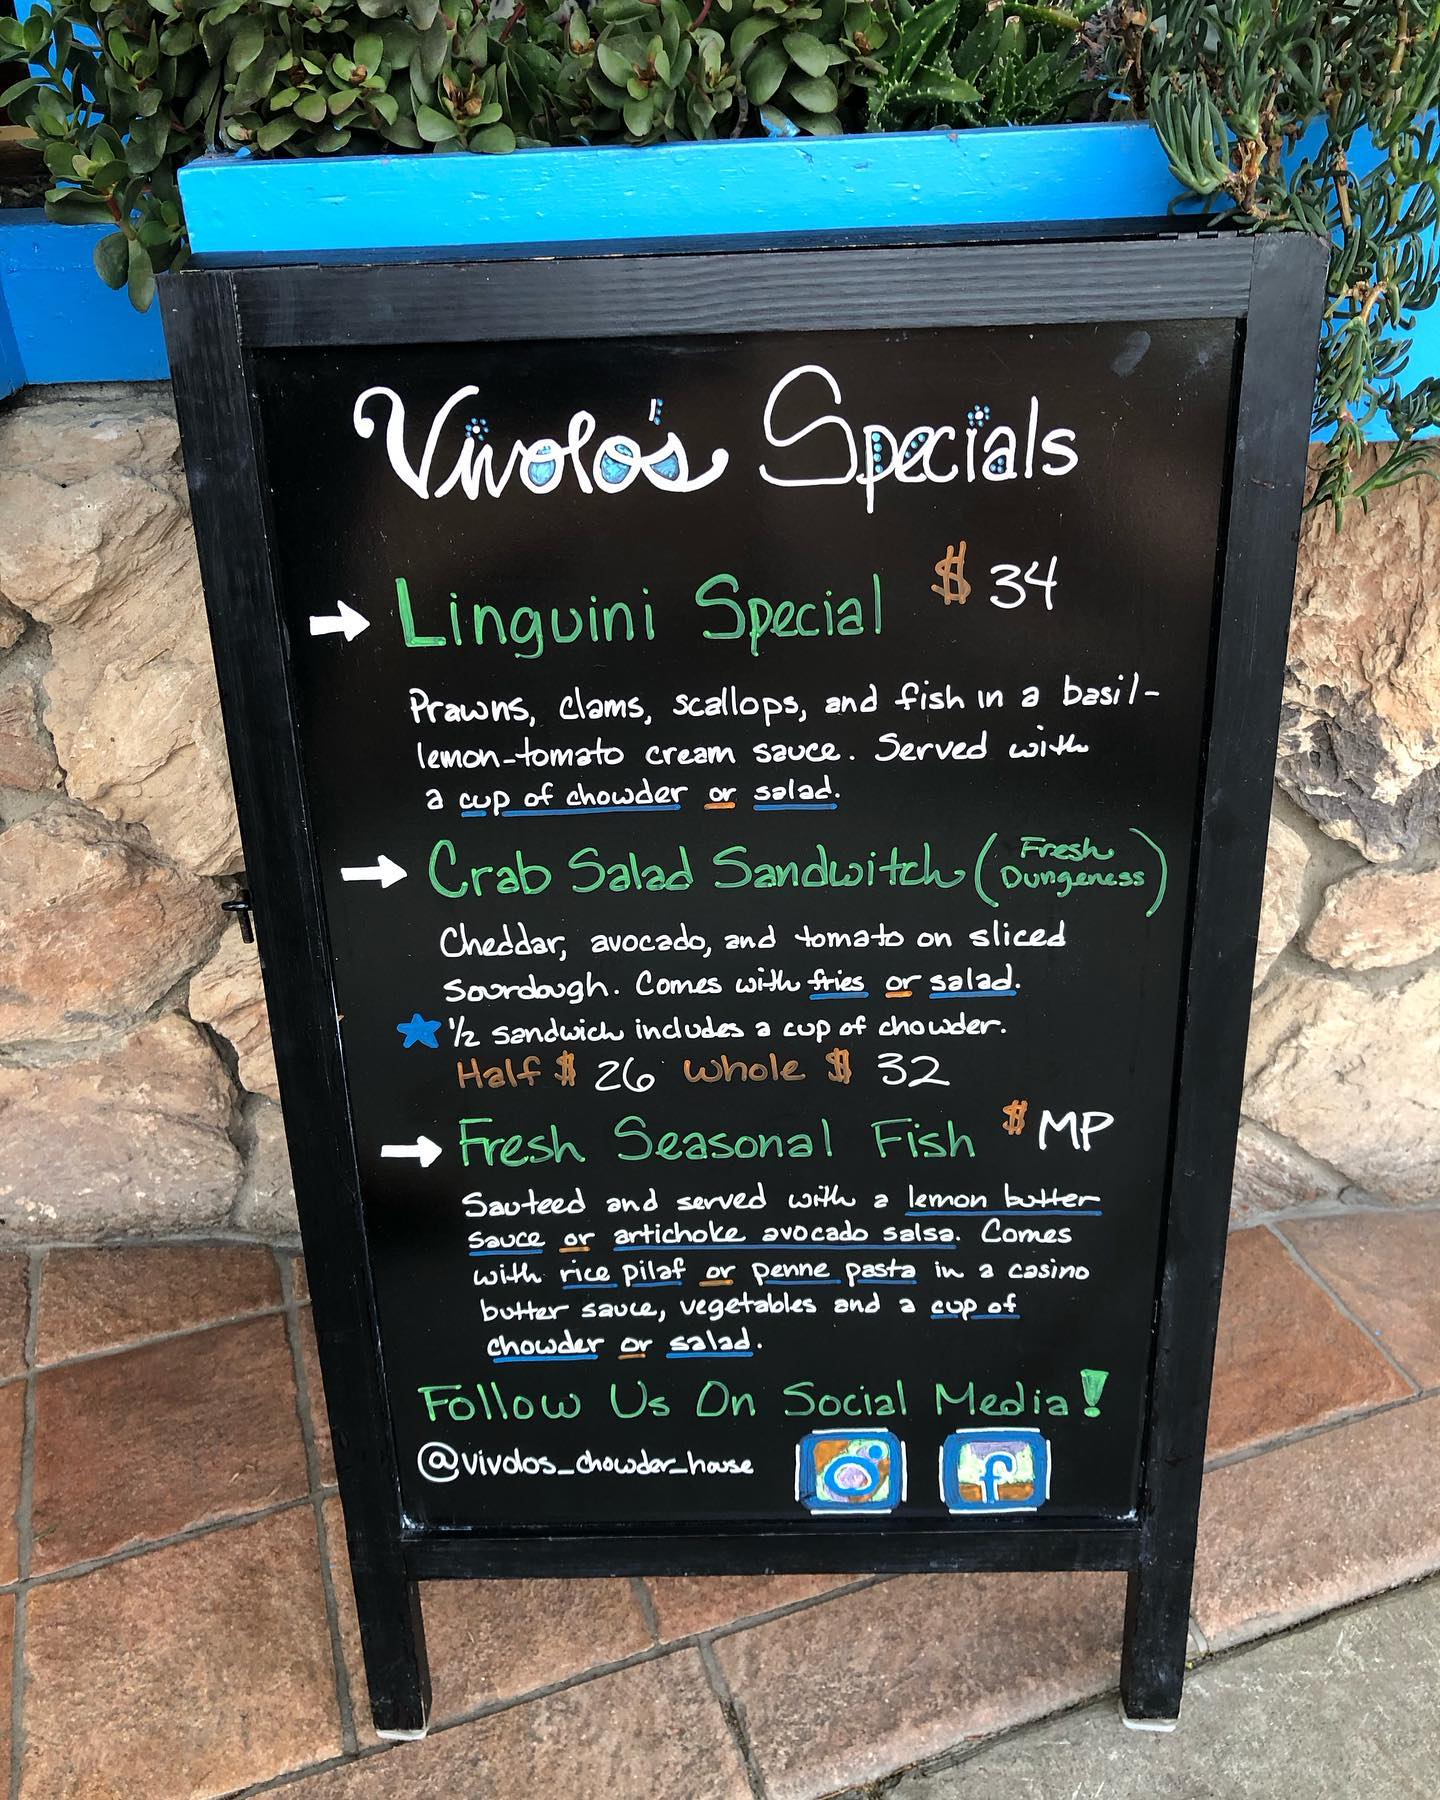 Vivolo's Specials
Linguini Special $34
Prawns, clams, scallops, and fish in a basil-
lemon-tomato cream sauce. Served with
a cup of chowder or salad.
Crab Salad Sandwitch (Fresh Dungeness)
Cheddar, avocado, and tomato on sliced
sourdough. Comes with fries or salad.
1/2 sandwich includes a cup of chowder.
Half $ 26 Whole $ 32
Fresh Seasonal Fish $MP
Sauteed and served with a lemon butter
sauce or artichoke avocado salsa. Comes
with rice pilaf or penne pasta in a casino
butter sauce, vegetables and a cup of
chowder or salad.
Follow Us On Social Media!
@vivolos_chowder_house f